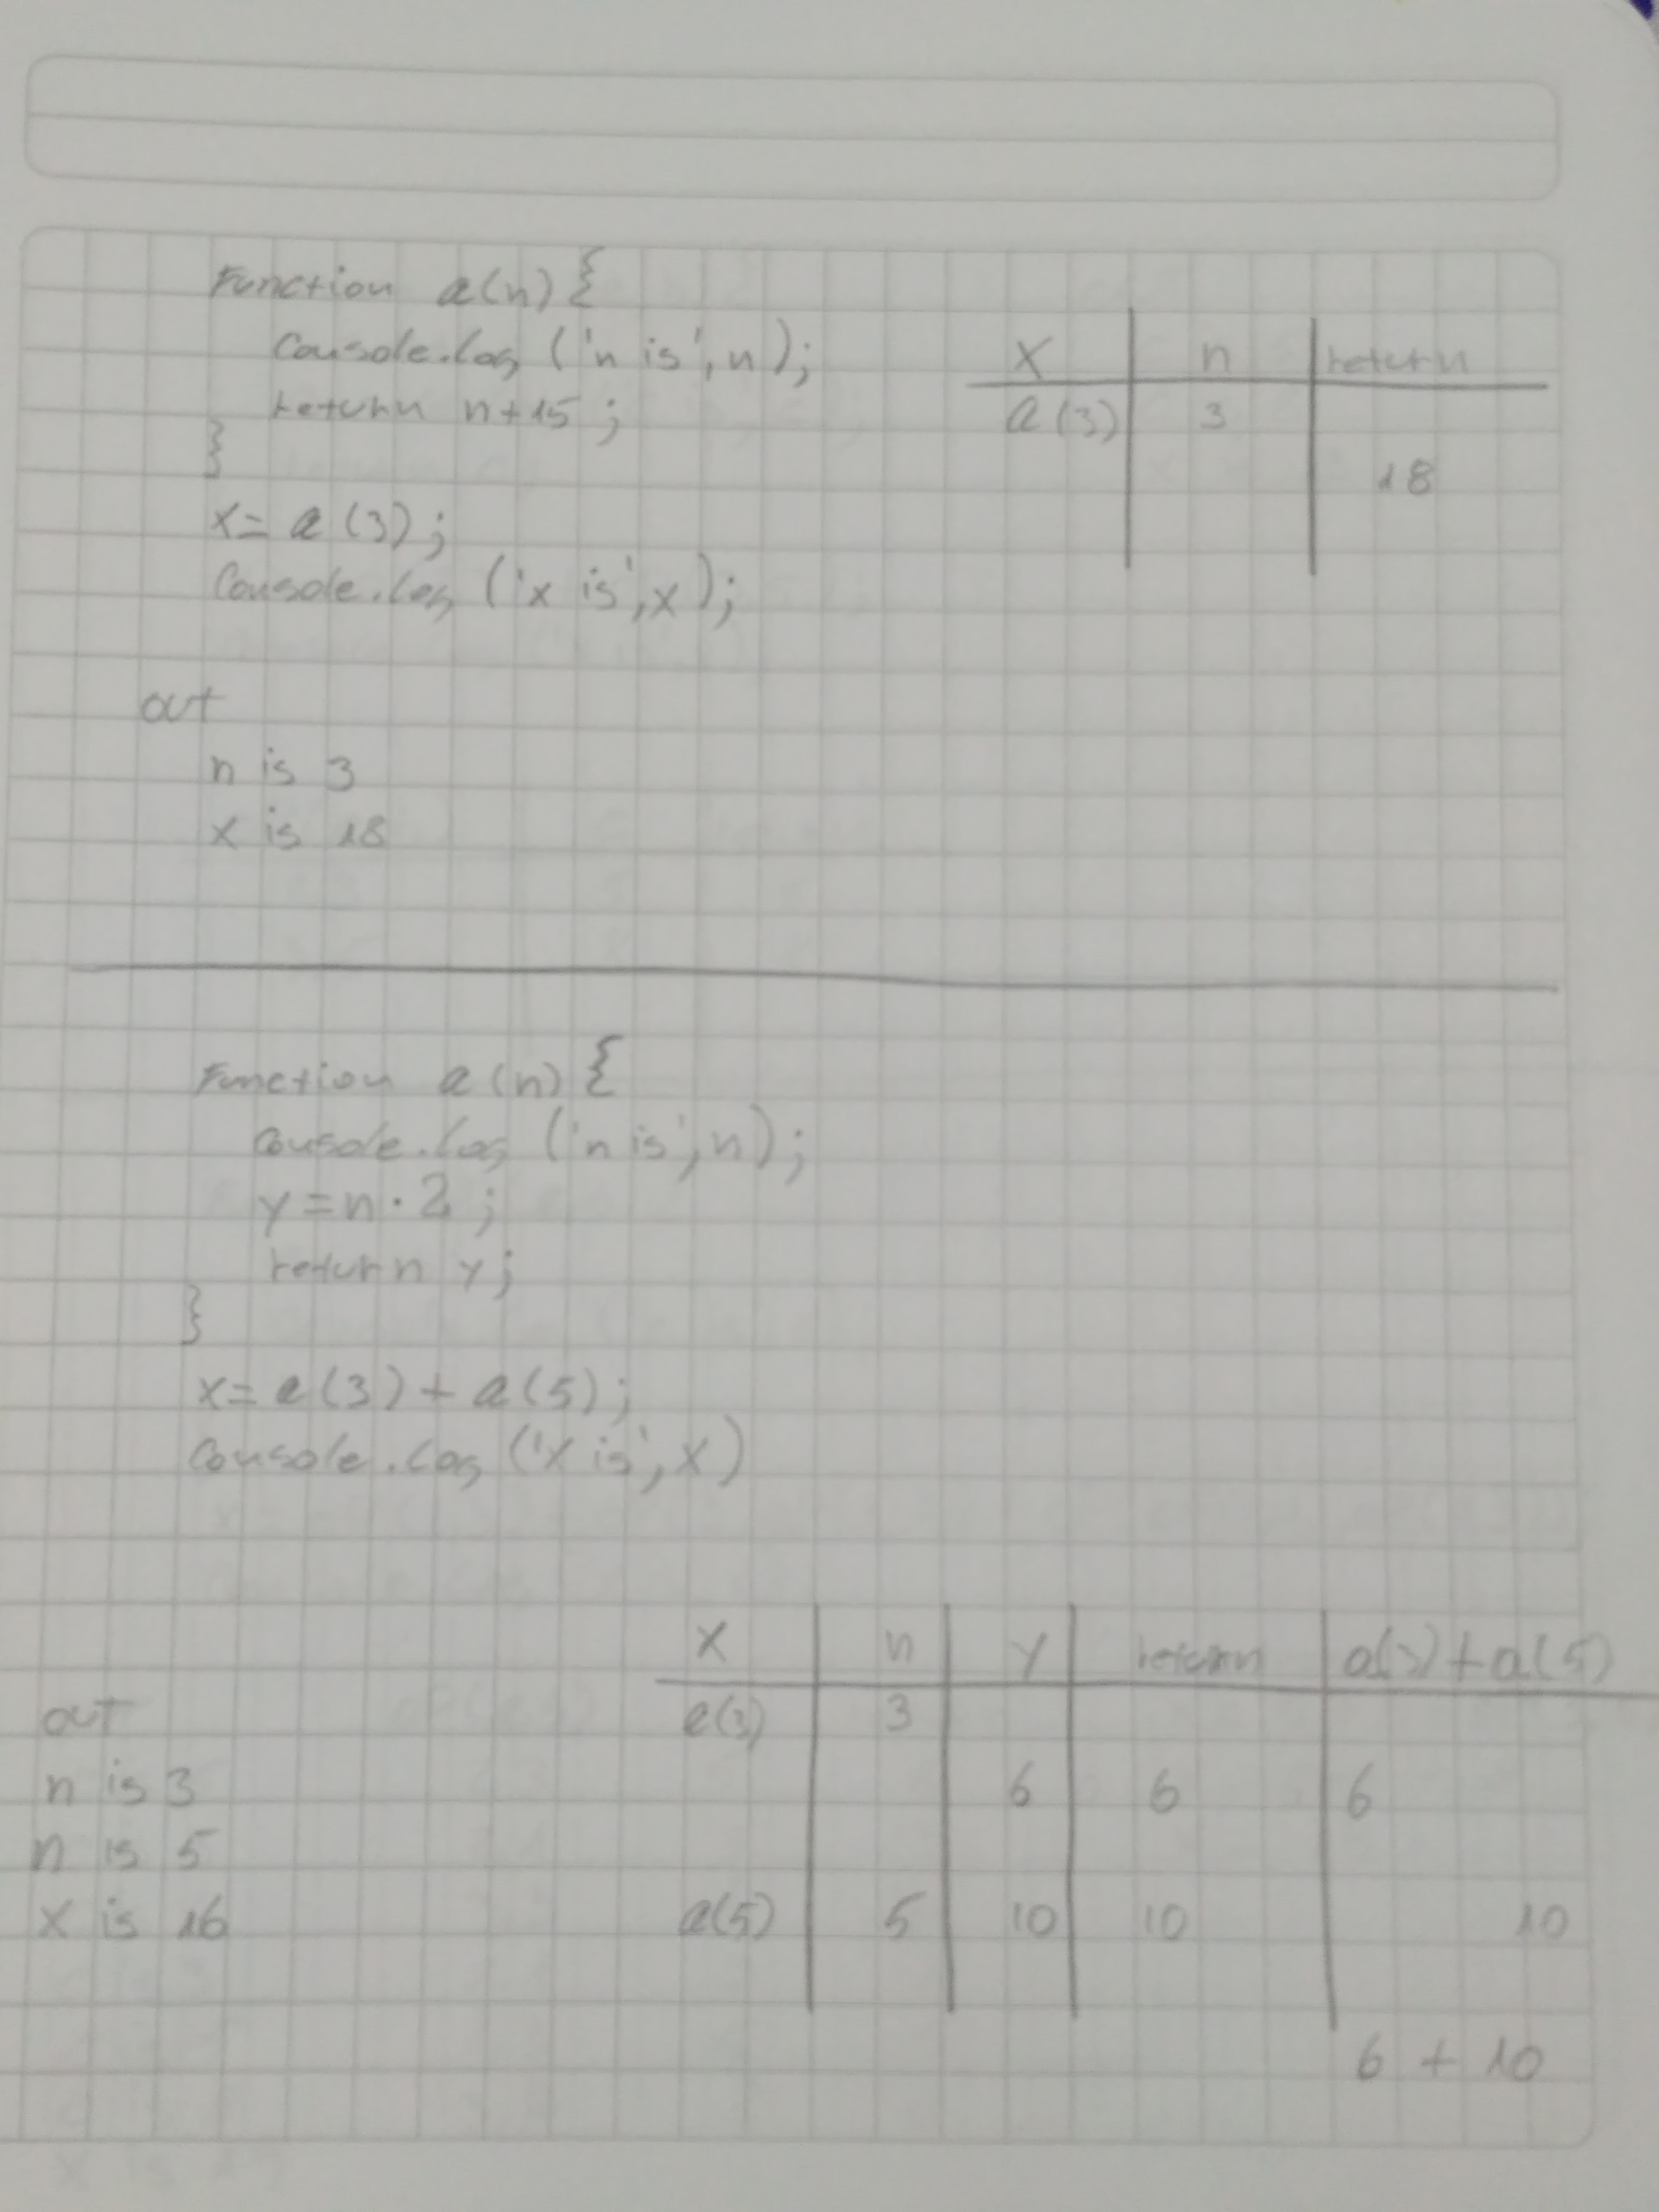 Function a(n) {
Console.log ('n is', n);
return n+15 ;
}
x= a (3) ;
Console.log ('x is', x);
X n return
a (3) 3
18
out
n is 3
x is 18
Function a (n) {
Console.log ('n is', n);
y = n · 2 ;
return y;
}
x= a(3) + a(5) ;
Console.log ('x is', x)
X n y return a(3) + a(5)
a(3) 3
6 6 6
a(5) 5 10 10 10
6 + 10
out
n is 3
n is 5
x is 16